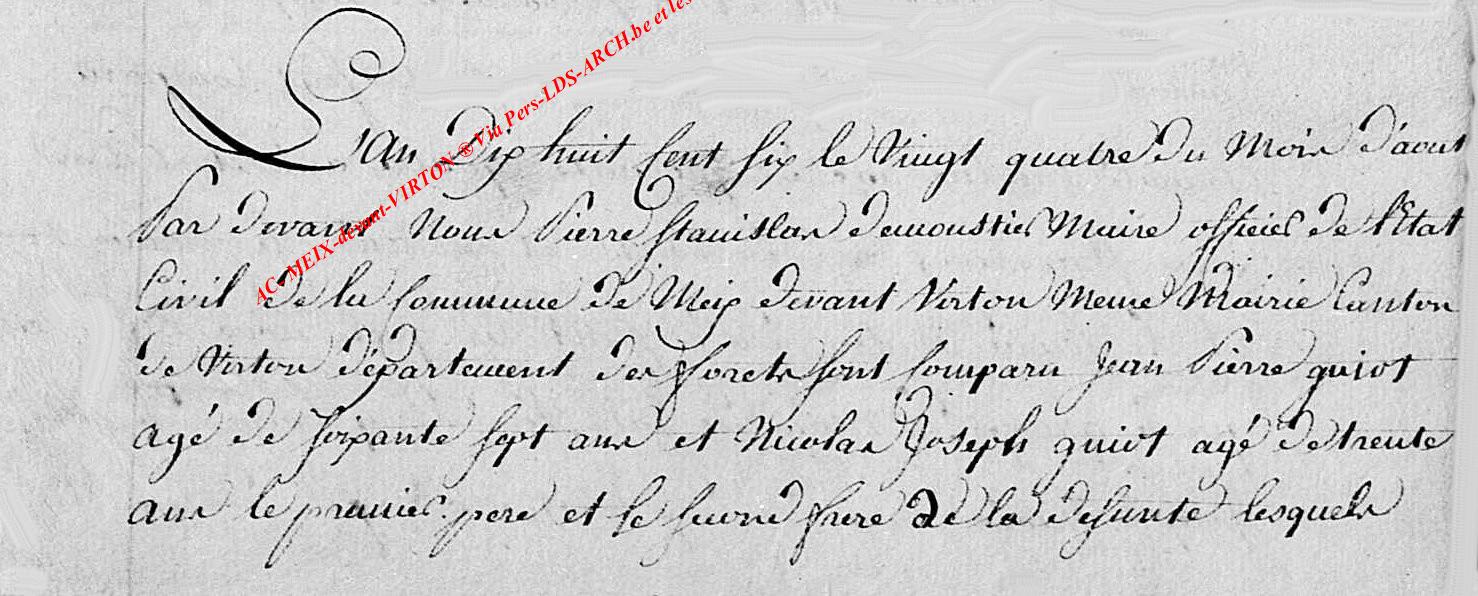 L'an Dix huit Cent six le Vingt quatre Du Mois d'aout
Par devant Nous Pierre Stanislas Demoustier Maire officier de l'Etat
Civil de la Commune de Meix devant Virton Meme Mairie Canton
de Virton département des forets sont Comparu Jean Pierre guiot
agé de soixante sept ans et Nicolas Joseph guiot agé de trente
ans le premier pere et le second frere de la defunte lesquels
AC-MEIX-devant-VIRTON ® Via Pers-LDS-ARCH.be et les